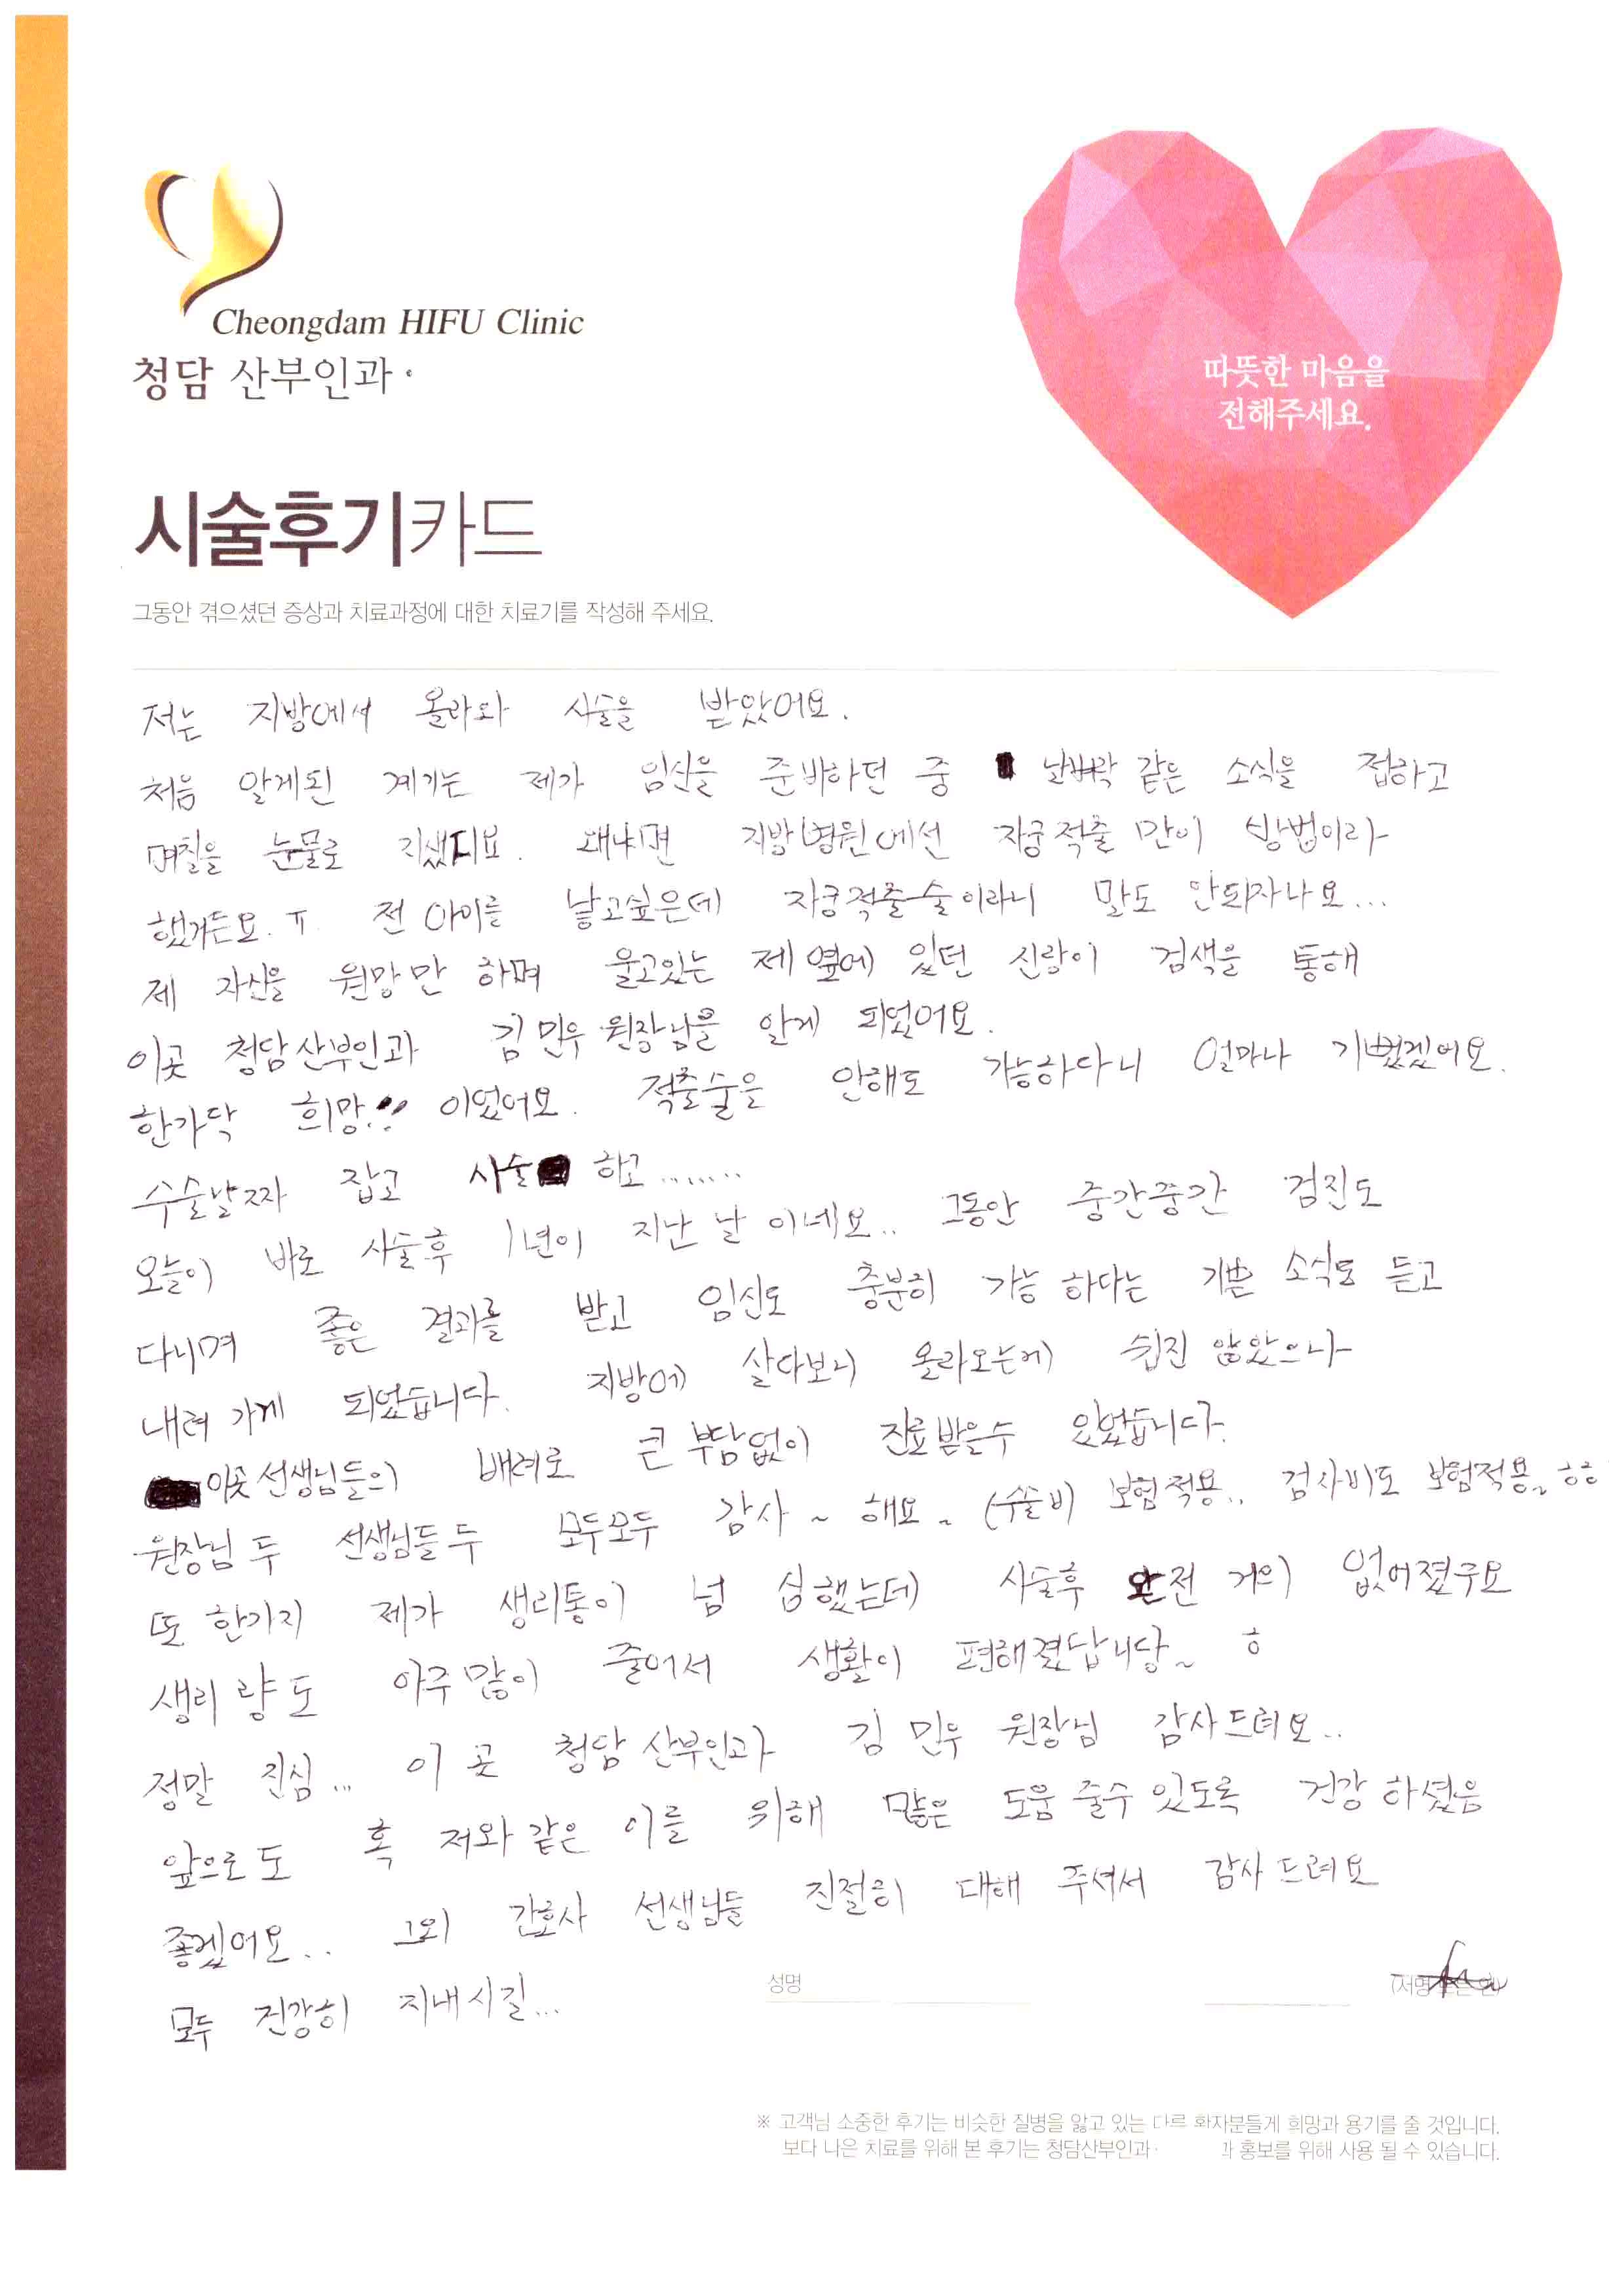 Cheongdam HIFU Clinic
청담 산부인과
따뜻한 마음을
전해주세요.
시술후기카드
그동안 겪으셨던 증상과 치료과정에 대한 치료기를 작성해 주세요.
저는 지방에서 올라와 시술을 받았어요.
처음 알게된 계기는 제가 임신을 준비하던 중 날벼락 같은 소식을 접하고
며칠을 눈물로 지냈지요. 왜냐면 지방병원에선 자궁적출만이 방법이라
했거든요. ㅠ 전 아이를 낳고싶은데 자궁적출술이라니 말도 안되자나요...
제 자신을 원망만 하며 울고있는 제 옆에 있던 신랑이 검색을 통해
이곳 청담산부인과 김민우 원장님을 알게 되었어요.
한가닥 희망!! 이었어요. 적출술을 안해도 가능하다니 얼마나 기뻤겠어요.
수술날짜 잡고 시술 하고.......
오늘이 바로 시술후 1년이 지난 날 이네요.. 그동안 중간중간 검진도
다니며 좋은 결과를 받고 임신도 충분히 가능 하다는 기쁜 소식도 듣고
내려 가게 되었습니다. 지방에 살다보니 올라오는게 쉽진 않았으나
이곳 선생님들의 배려로 큰 부담없이 진료받을수 있었습니다.
원장님 두 선생님들 두 모두모두 감사~ 해요~ (수술비 보험적용.. 검사비도 보험적용~ ㅎㅎ
또 한가지 제가 생리통이 넘 심했는데 시술후 완전 거의 없어졌구요
생리 량도 아주 많이 줄어서 생활이 편해졌답니당~ ㅎ
정말 진심... 이 곳 청담 산부인과 김민우 원장님 감사드려요..
앞으로도 혹 저와 같은 이를 위해 많은 도움 줄수 있도록 건강 하셨음
좋겠어요.. 그외 간호사 선생님들 친절히 대해 주셔서 감사 드려요
모두 건강히 지내시길...
성명
※ 고객님 소중한 후기는 비슷한 질병을 앓고 있는 다른 환자분들게 희망과 용기를 줄 것입니다.
보다 나은 치료를 위해 본 후기는 청담산부인과 홍보를 위해 사용 될 수 있습니다.